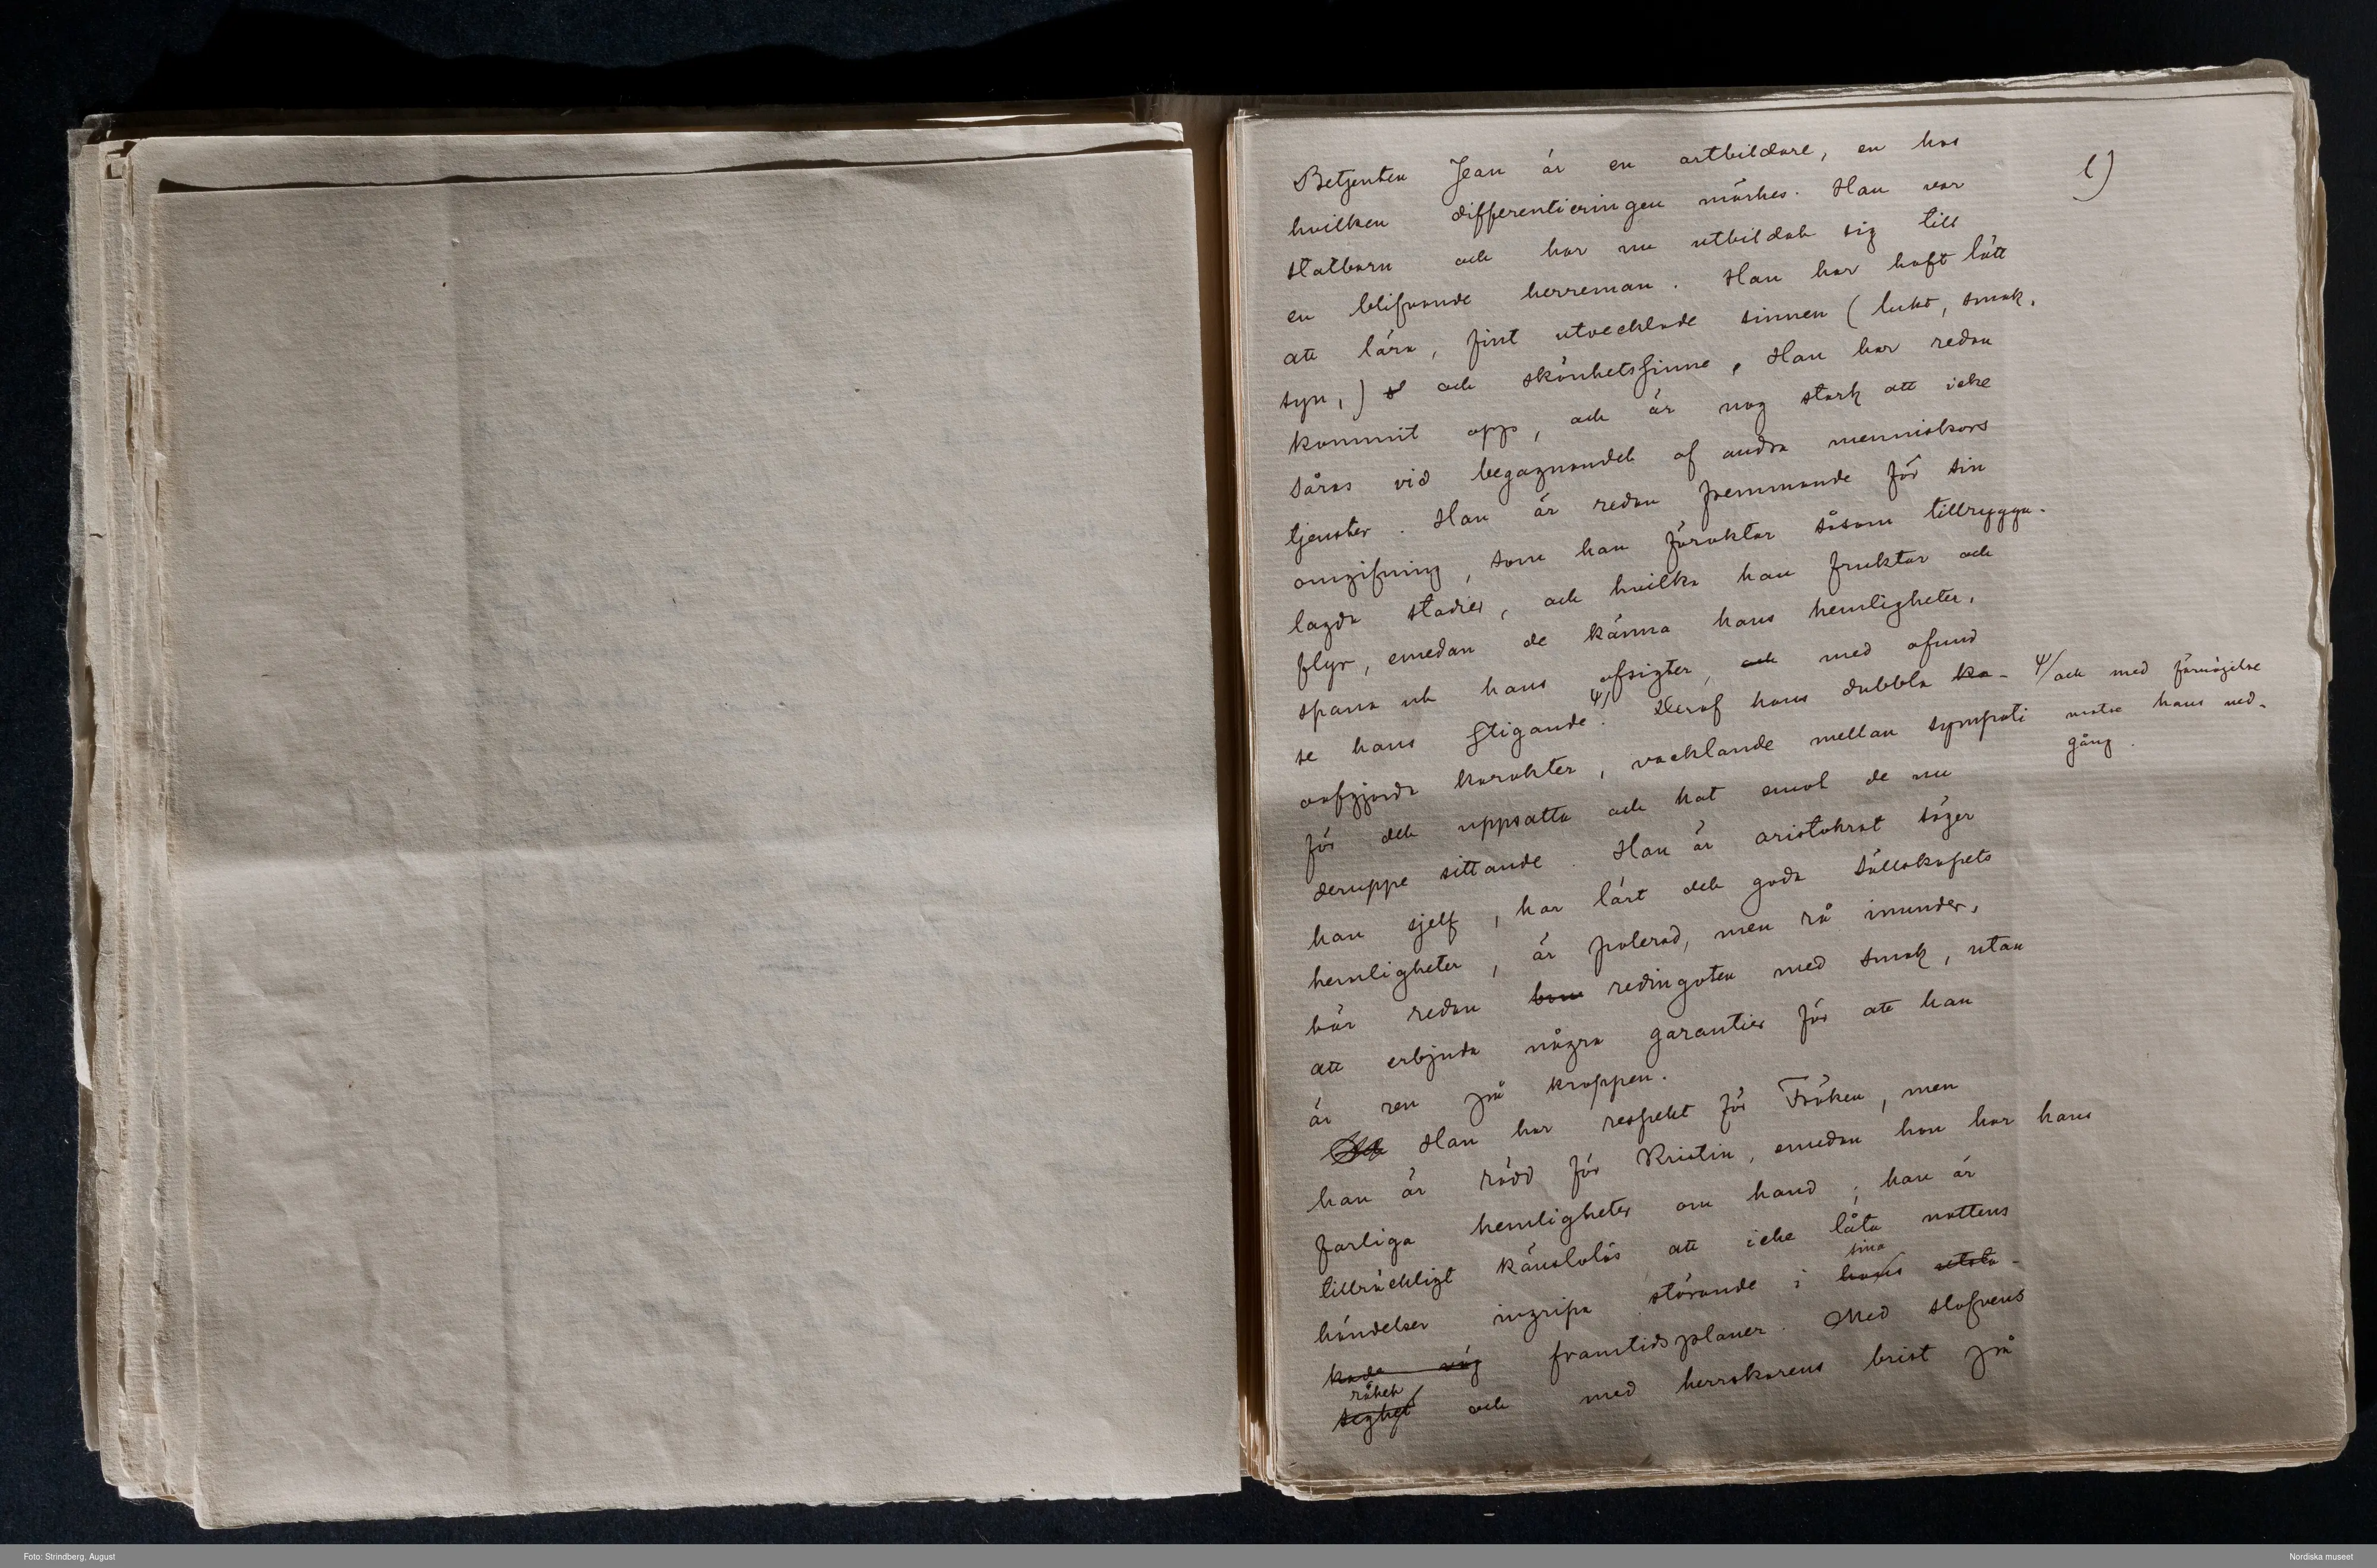 Betjenten Jean är en artbildare, en hos
l)
hvilken differentieringen märkes. Han var
statbarn och har nu utbildat sig till
en blifvande herreman. Han har haft lätt
att lära, fint utvecklade sinnen (lukt, smak,
syn,) s och skönhetssinne, Han har redan
kommit opp, och är nog stark att icke
såras vid begagnandet af andra menniskors
tjenster. Han är redan fremmande för sin
omgifning, som han föraktar såsom tillrygga-
lagda stadier, och hvilka han fruktar och
flyr, emedan de känna hans hemligheter,
spana ut hans afsigter, och med afund
se hans stigande. Deraf hans dubbla ka-
och med förnöjelse
motse hans ned-
gång.
oafgjorda karakter, vacklande mellan sympati
för det uppsatta och hat emot de nu
deruppe sittande. Han är aristokrat säger
han sjelf, har lärt det goda sällskapets
hemligheter, är polerad, men rå inunder,
bär redan redingoten med smak, utan
att erbjuda några garantier för att han
är ren på kroppen.
Han har respekt för Fröken, men
han är rädd för Kristin, emedan hon har hans
farliga hemligheter om hand; han är
tillräckligt känslolös att icke låta nattens
händelser ingripa störande i hans sina utsta-
kade väg framtidsplaner. Med slafvens
seghet råhet och med herrskarens brist på
Foto: Strindberg, August
Nordiska museet